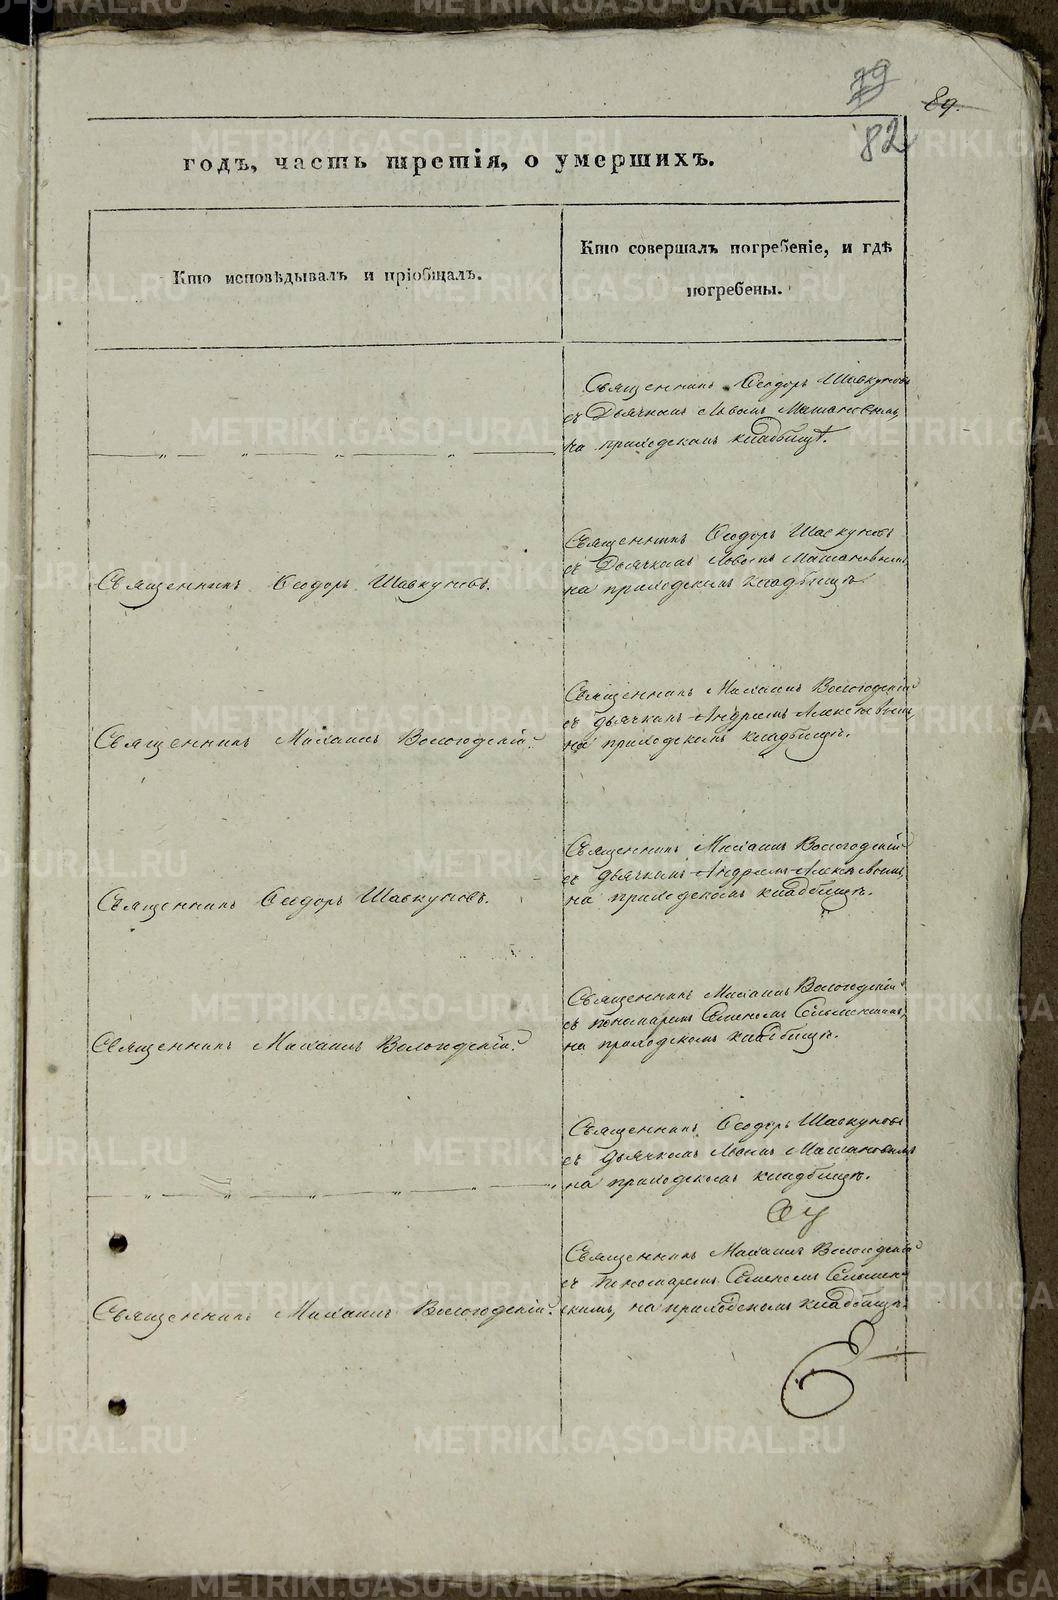 79
89.
82
годъ, часть третія, о умершихъ.
Кто исповѣдывалъ и пріобщалъ.
Кто совершалъ погребеніе, и гдѣ
погребены.
Священникъ Ѳеодоръ Шавкуновъ
съ Дьячкомъ Львомъ
на приходскомъ кладбищѣ.
Священникъ Ѳеодоръ Шавкуновъ.
Священникъ Ѳеодоръ Шавкуновъ
съ Дьячкомъ Львомъ
на приходскомъ кладбищѣ.
Священникъ Михаилъ Вологодскій.
Священникъ Михаилъ Вологодскій
съ дьячкомъ Андреемъ Алексѣевымъ,
на приходскомъ кладбищѣ.
Священникъ Ѳеодоръ Шавкуновъ.
Священникъ Михаилъ Вологодскій
съ дьячкомъ Андреемъ Алексѣевымъ,
на приходскомъ кладбищѣ.
Священникъ Михаилъ Вологодскій.
Священникъ Михаилъ Вологодскій
съ пономаремъ Семеномъ
на приходскомъ кладбищѣ.
Священникъ Ѳеодоръ Шавкуновъ
съ дьячкомъ Львомъ
на приходскомъ кладбищѣ.
Священникъ Михаилъ Вологодскій.
Священникъ Михаилъ Вологодскій
съ пономаремъ Семеномъ
на приходскомъ кладбищѣ.
METRIKI.GASO-URAL.RU